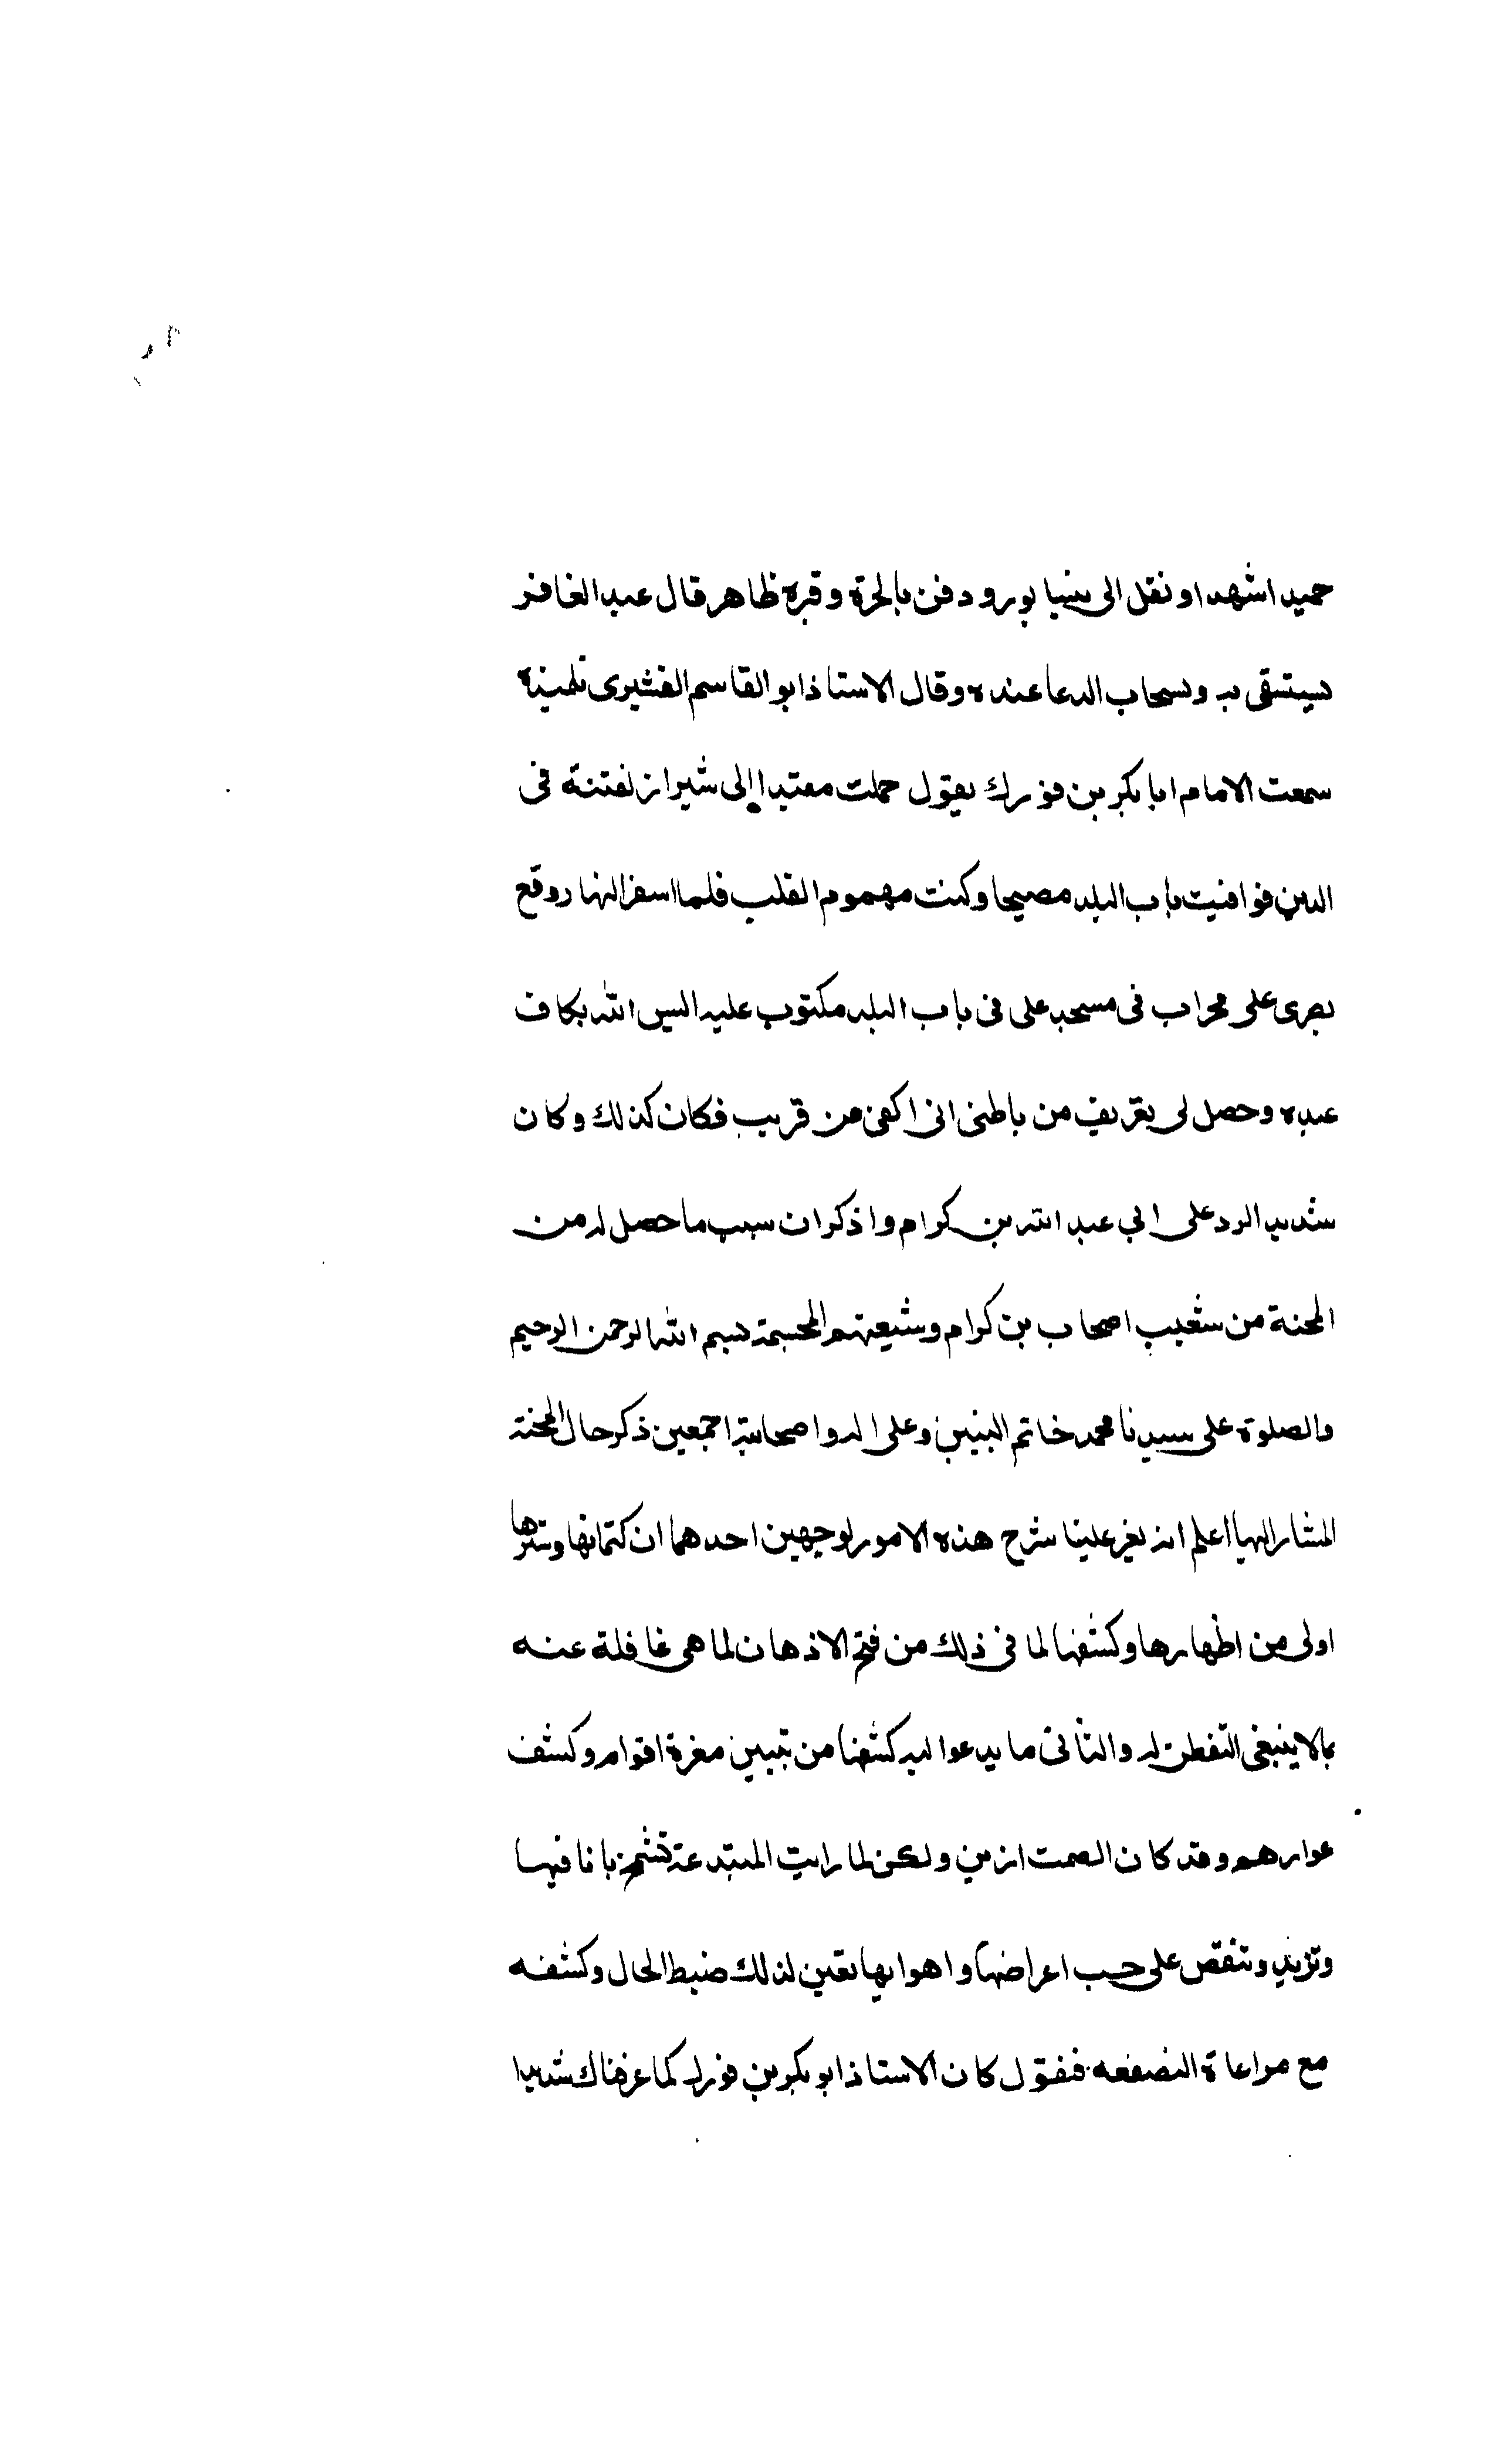 حميدا شهيدا ونقل الى نيسابور ودفن بالحرة وقبره ظاهر قال عبد الغافر
يستسقى به ويستجاب الدعا عنده وقال الاستاذ ابو القاسم القشيرى تلميذه
سمعت الامام ابا بكر بن فورك يقول حملت مقيدا إلى شيراز لفتنة فى
الدين فوافيت باب البلد مصبحا وكنت مهموم القلب فلما اسفر النهار وقع
بصرى على محراب فى مسجد على فى باب البلد مكتوب عليه اليس الله بكاف
عبده وحصل لى تعريف من باطنى انى اكفى من قريب فكان كذلك وكان
شديد الرد على ابي عبد الله بن كرام واذكر ان سبب ما حصل له من
المحنة من شغيب اصحاب بن كرام وشيعتهم المجسمة بسم الله الرحمن الرحيم
والصلوة على سيدنا محمد خاتم النبيين وعلى اله واصحابه اجمعين ذكر حال المحنة
المشار اليها اعلم انه يعز علينا شرح هذه الامور لوجهين احدهما ان كتمانها وسترها
اولى من اظهارها وكشفها لما فى ذلك من فتح الاذهان لما هى غافلة عنه
بما لا ينبغى التفطن له والثانى ما يدعوا اليه كشفها من تبيين معرة اقوام وكشف
عوارهم وقد كان الصمت ازين ولكن لما رايت المبتدعة تشمخ بانافها
وتزيد وتنقص على حسب اعراضها واهوايها تعين لذلك ضبط الحال وكشفه
مع مراعاة النصفة فنقول كان الاستاذ ابو بكر بن فورك كما عرفناك شديدا